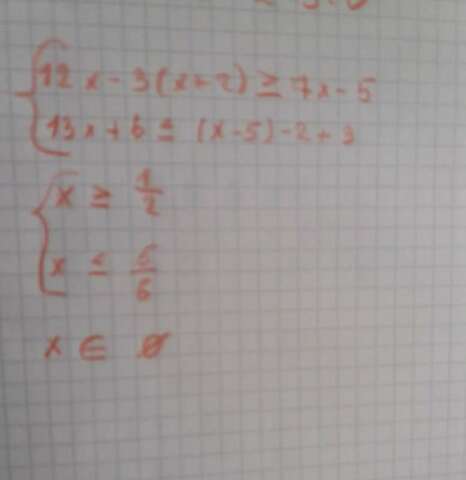 12x - 3(x+2) ≥ 7x - 5
13x + 6 ≤ (x-5)·2 + 3
x ≥ 1/2
x ≤
x ∈ ø